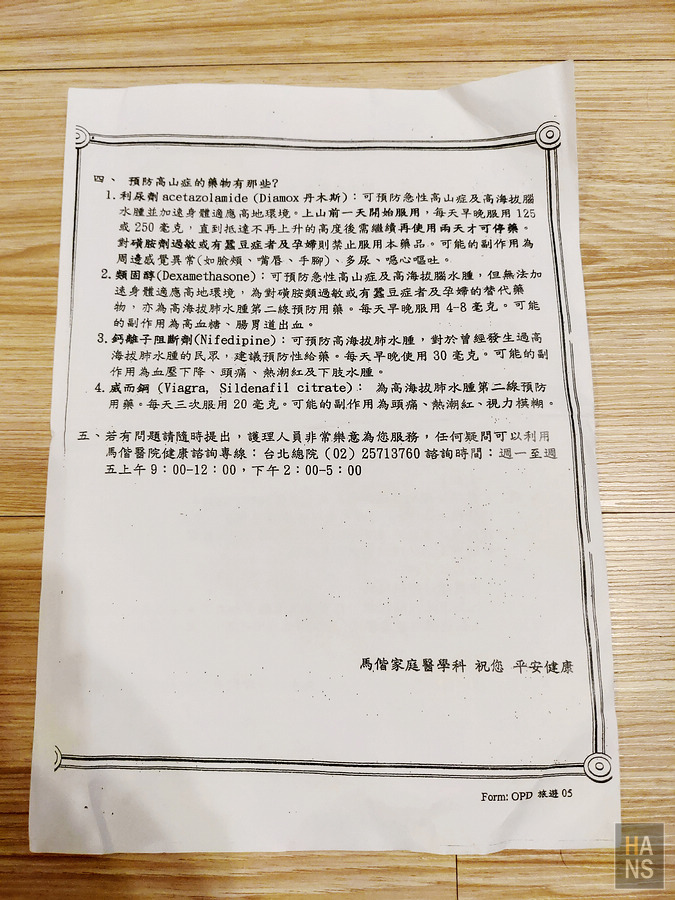 四、 預防高山症的藥物有那些?
1.利尿劑acetazolamide (Diamox 丹木斯)：可預防急性高山症及高海拔腦
水腫並加速身體適應高地環境。上山前一天開始服用，每天早晚服用125
或250毫克，直到抵達不再上升的高度後需繼續再使用兩天才可停藥。
對磺胺劑過敏或有蠶豆症者及孕婦則禁止服用本藥品。可能的副作用為
周邊感覺異常(如臉頰、嘴唇、手腳)、多尿、噁心嘔吐。
2.類固醇(Dexamethasone)：可預防急性高山症及高海拔腦水腫，但無法加
速身體適應高地環境，為對磺胺類過敏或有蠶豆症者及孕婦的替代藥
物，亦為高海拔肺水腫第二線預防用藥。每天早晚服用4-8毫克。可能
的副作用為高血糖、腸胃道出血。
3.鈣離子阻斷劑(Nifedipine)：可預防高海拔肺水腫，對於曾經發生過高
海拔肺水腫的民眾，建議預防性給藥。每天早晚使用30毫克。可能的副
作用為血壓下降、頭痛、熱潮紅及下肢水腫。
4.威而鋼 (Viagra, Sildenafil citrate)： 為高海拔肺水腫第二線預防
用藥。每天三次服用20毫克。可能的副作用為頭痛、熱潮紅、視力模糊。
五、若有問題請隨時提出，護理人員非常樂意為您服務，任何疑問可以利用
馬偕醫院健康諮詢專線：台北總院(02)25713760諮詢時間：週一至週
五上午9：00-12：00，下午2：00-5：00
馬偕家庭醫學科 祝您 平安健康
Form: OPD 旅遊 05
HANS